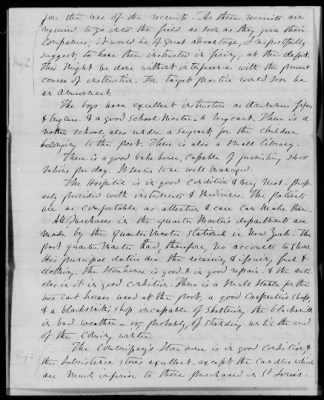 for the use of the recruits. As these recruits are
required to go into the field as soon as they join their
Companies, it would be of great advantage, I respectfully
suggest to have them instructed in firing, at the depot.
This might be done without interference with the present
course of instruction. For target practice would soon be
an amusement.
The boys have excellent instructors as drummers, fifers
& buglers & a good school Master, a Sergeant. There is a
nother school, also under a Sergeant for the children
belonging to the post. There is also a small library.
There is a good bake house, capable of furnishing
rations per day. It seems to be well managed.
The Hospital is in good condition & very well
provided with instruments & medicines. The patients
are as comfortable as attention & care can make them.
All Purchases in the quarter Master's department are
made by the Quarter Master stationed in New York. The
post quarter Master had, therefore, no accounts to show
His principal duties are the receiving & issuing fuel &
clothing. The Storehouse is good & in good repair. & the
in it in good condition. There is a small stable for the
two cart horses used at the post, a good Carpenter's shop,
& a blacksmith's shop incapable of sheltering the blacksmith
in bad weather - or, probably, of standing until the end
of the coming winter.
The Commissary's Store room is in good condition, &
the Subsistence stores excellent, except the candles which
are much inferior to those purchased in St Louis.